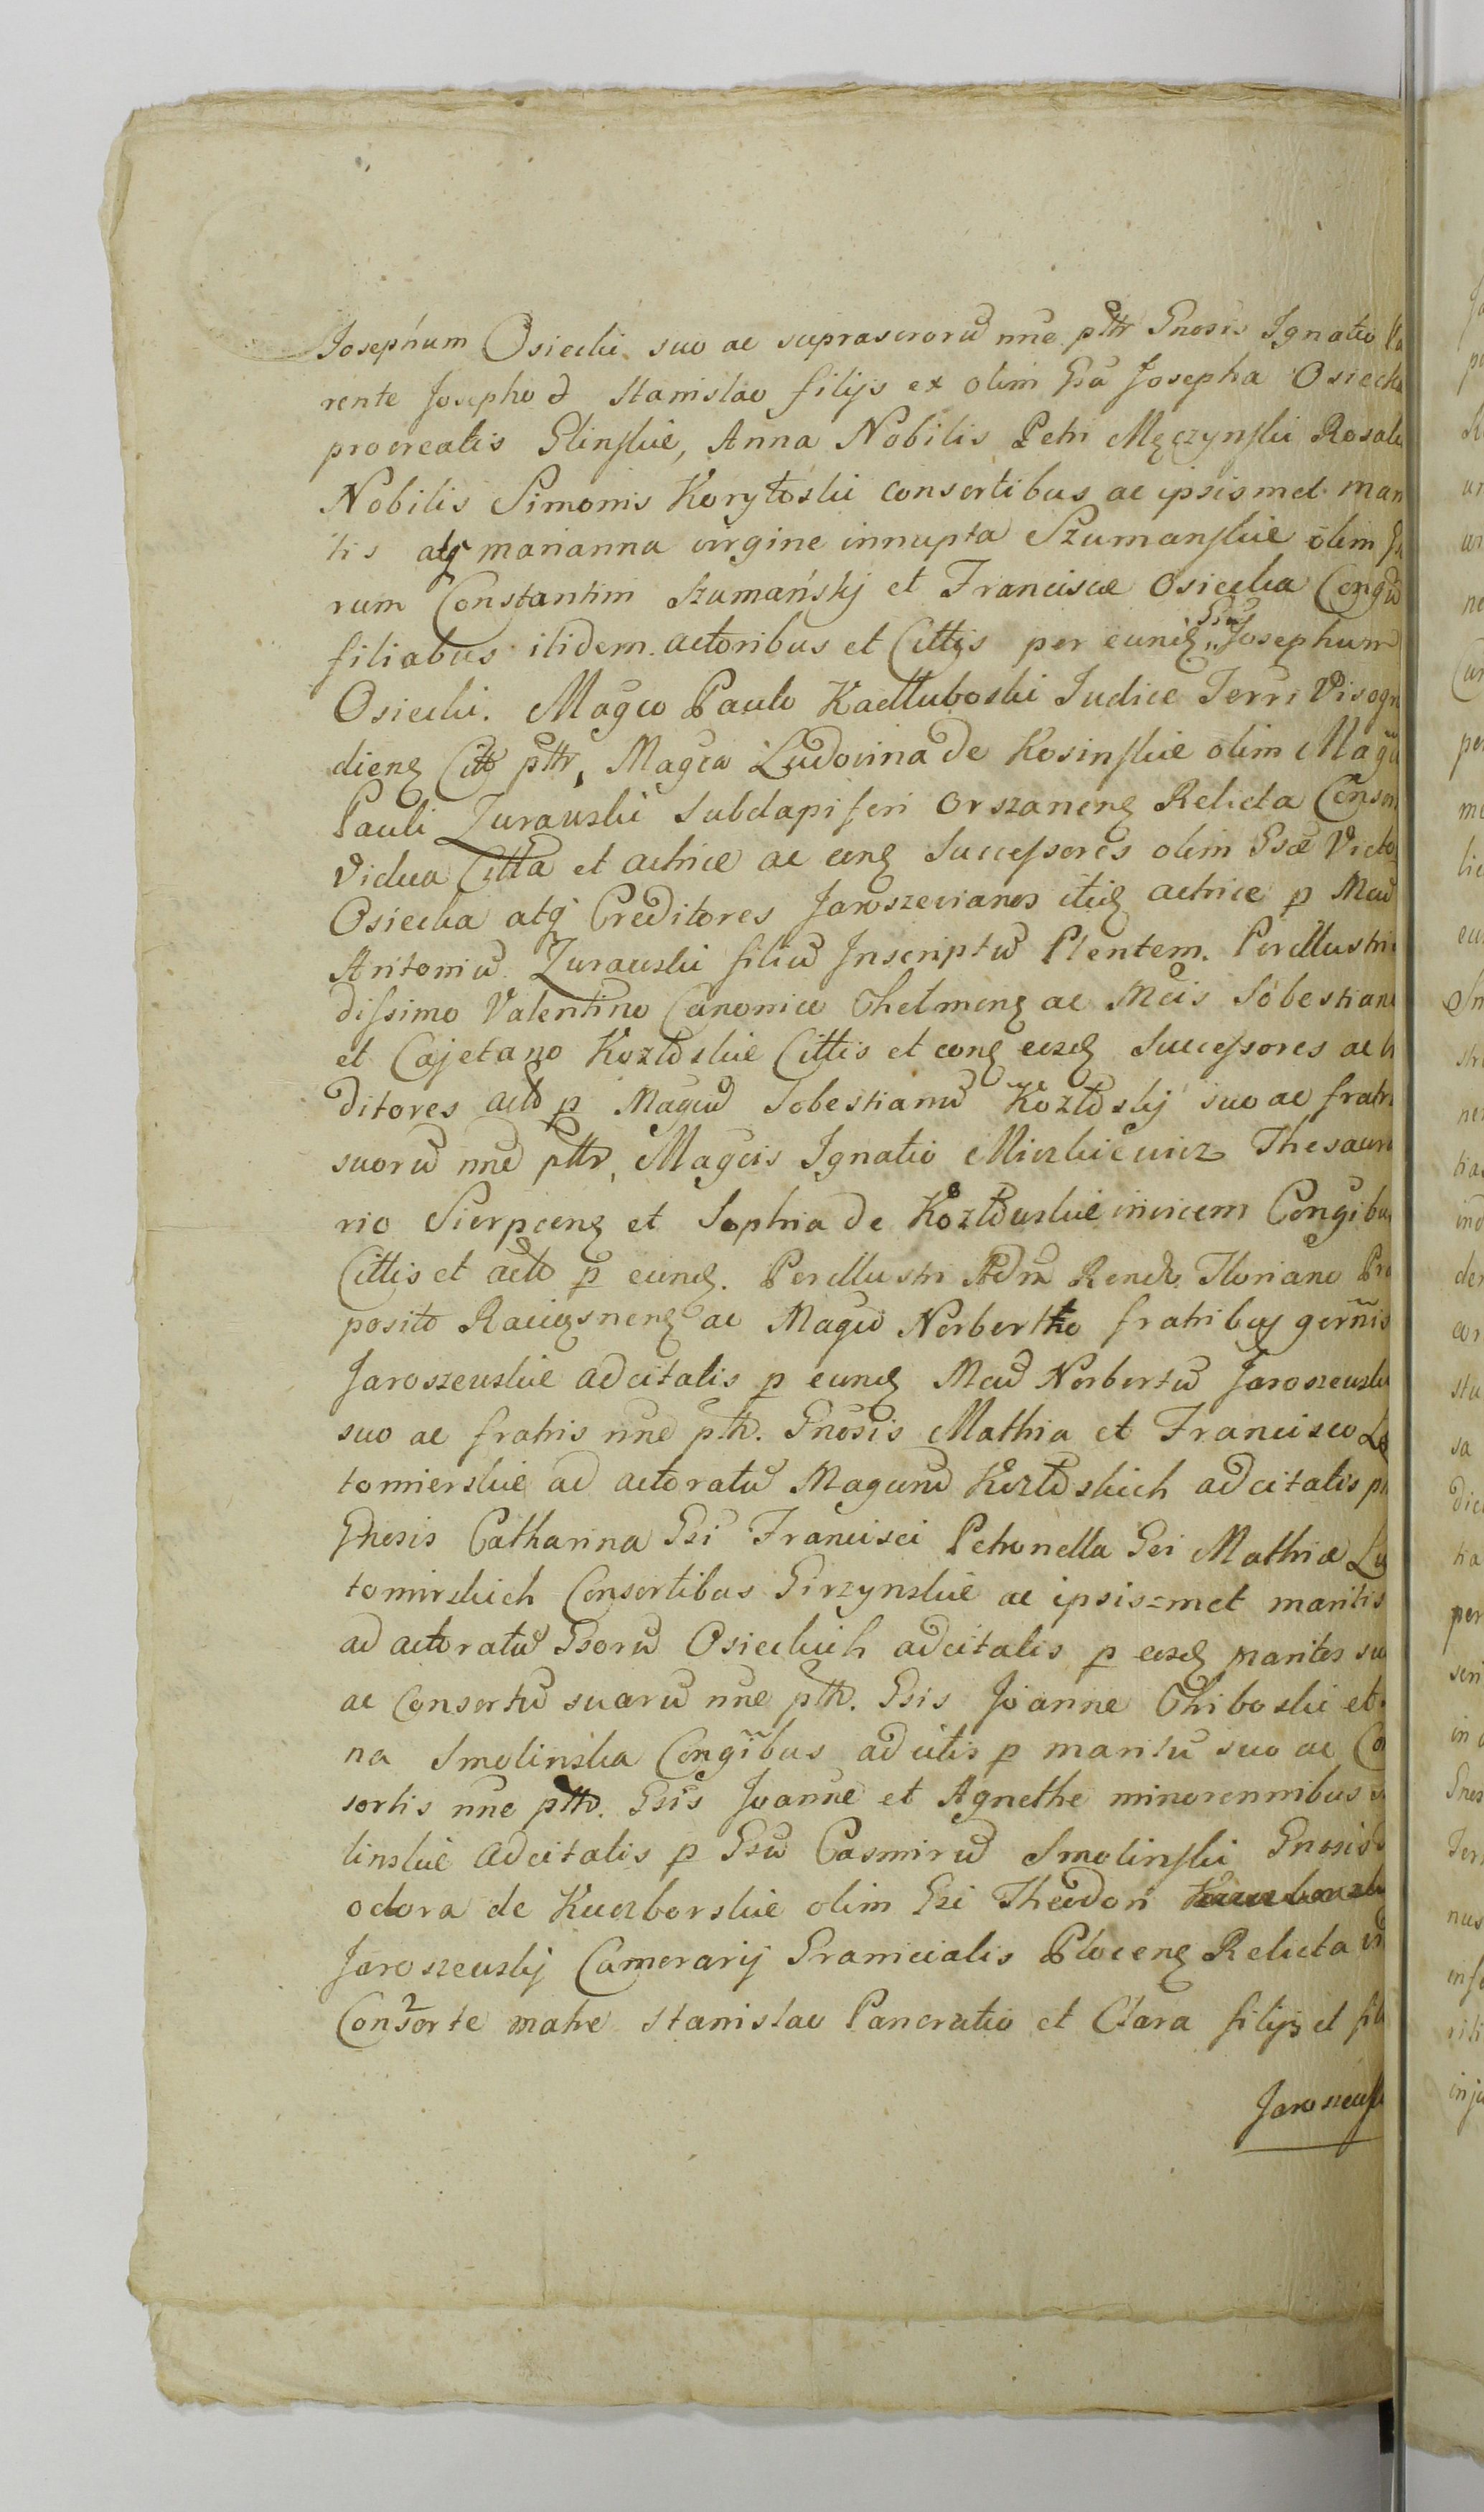 Josephum Osiecki suo ac suprascrorũ nne pttr Gnosis Ignatio Pa
rente Josepho d Stanislao filijs ex olim Gsa Josepha Osiecka
procreatis Glinskie, Anna Nobilis Petri Męczynski Rosali
Nobilis Simonis Korytoski consortibus ac ipsismet mari
tis atq marianna virgine innupta Szumanskie olim
rum Constantini Szumański et Franciscæ Osiecka Congũ
filiabus itidem actoribus et Cittis per eunđ Gsũ Josephum
Osiecki. Magco Paulo Kadłuboski Judice Terri Visogr
dienȩ Citto pttr, Magca Ludovina de Kosinskie olim Magci
Pauli Zurawski Subdapiferi Orszanenȩ Relicta Conson
Vidua Citta et actrice ac eonȩ Successores olim Gsæ Victo
Osiecka atq Creditores Jaroszevianos itiđ actrice p Mcũ
Antoniũ Zurawski filiũ Inscriptũ Plentem. Perillustri
dissimo Valentino Canonico Chelmenȩ ac Mcis Sobestiano
et Cajetano Kozłoskie Cittis et eonȩ eosđ Successores ac
ditores acto p Magcũ Sobestianũ Kozłoskj suo ac fratr
suorũ nne pttr, Magcis Ignatio Miczkiewicz Thesaur
rio Sierpcenȩ et Sophia de Kozłowskie invicem Congibus
Cittis et acto p eunđ. Perillustri Adm Rendo Floriano Pre
posito Raciązsnenȩ ac Magco Norbertho fratribus germis
Jaroszewskie adcitatis p eunđ Mcũ Norbertũ Jaroszewski
suo ac fratris nne pttr. Gnosis Mathia et Francisco
tomierskie ad actoratũ Magcorũ Kozłoskich adcitatis
Gnosis Catharina Gsi Francisci Petronella Gsi Mathiæ Lu
tomirskich Consortibus Girzynskie ac ipsis=met maritis
ad actoratũ Gsorũ Osieckich adcitatis p eosđ maritos su
ac Consortũ suarũ nne pttr. Gsis Joanne Chiboski et
na Smolinska Congibus adcitis p maritũ suo ac Con
sortis nne pttr. Gsis Joanne et Agnethe minorennibus
linskie adcitatis p Gsũ Casmirũ Smolinski Gnosis
odora de Kuczborskie olim Gsi Theodori
Jaroszewskj Camerarij Granicialis Plocenȩ Relicta
Consorte matre Stanislao Pancratio et Clara filijs et fil
Jaroszews